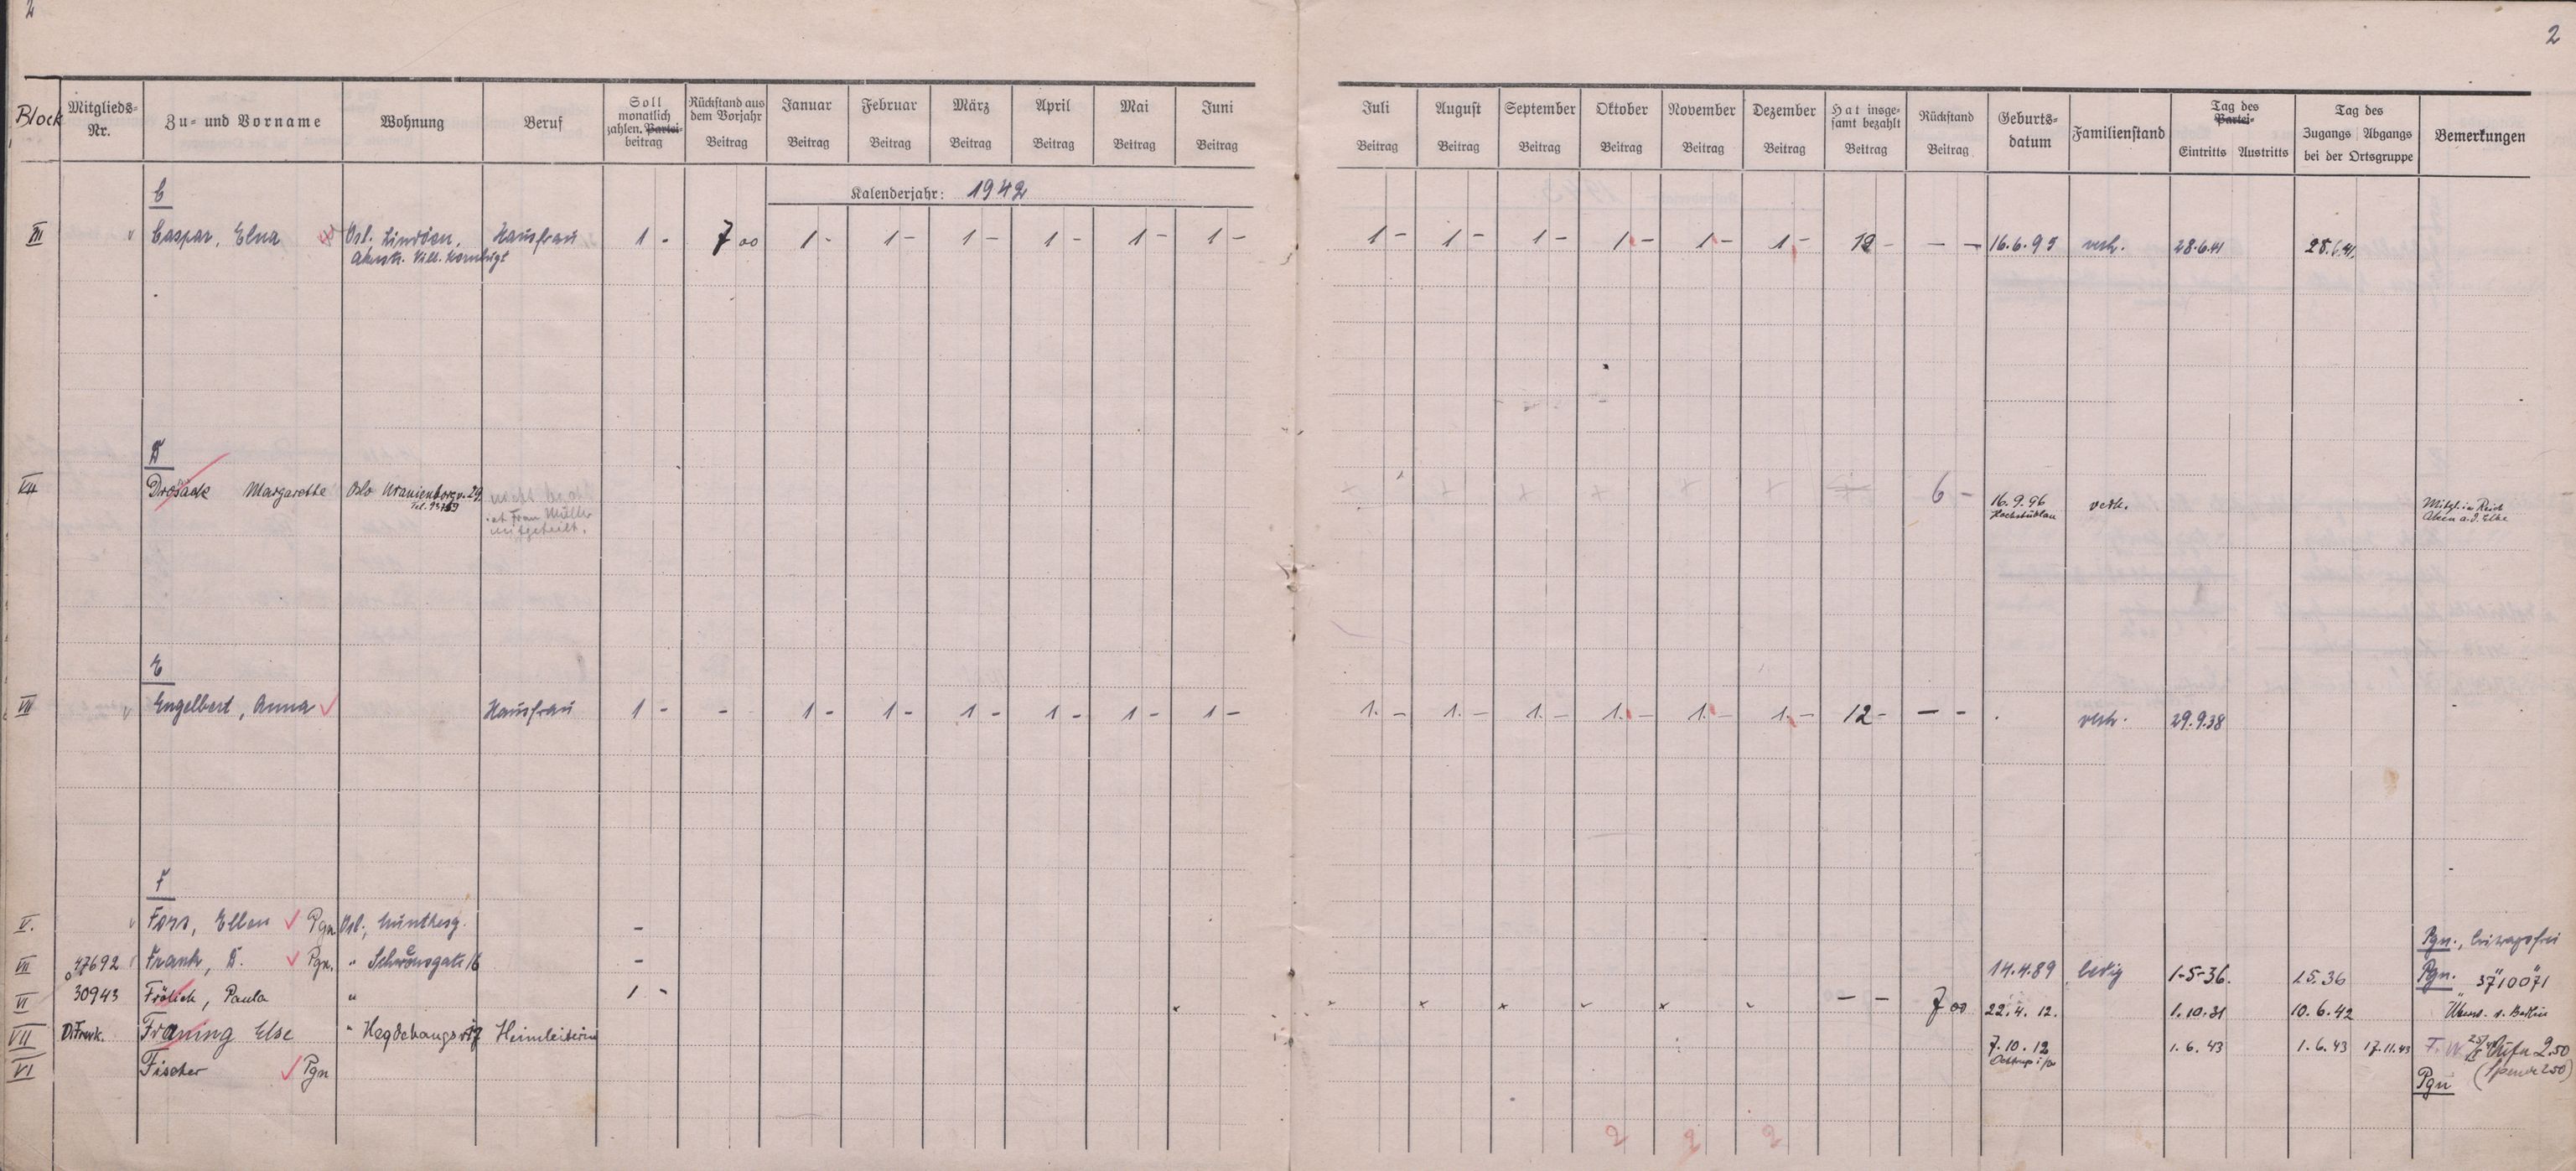 2
2
Block Mitglieds-Nr. Zu- und Vorname Wohnung Beruf Soll monatlich zahlen. Partei-beitrag Rückstand aus dem Vorjahr Beitrag Januar Beitrag Februar Beitrag März Beitrag April Beitrag Mai Beitrag Juni Beitrag Juli Beitrag August Beitrag September Beitrag Oktober Beitrag November Beitrag Dezember Beitrag Hat insge-samt bezahlt Beitrag Rückstand Beitrag Geburts-datum Familienstand Tag des Partei- Eintritts Austritts Tag des Zugangs Abgangs bei der Ortsgruppe Bemerkungen
C
Kalenderjahr: 1942
VII Caspar, Elna Osl. Hausfrau 1 - 7 00 1 - 1 - 1 - 1 - 1 - 1 - 1 - 1 - 1 - 1 - 1 - 1 - 12 - - - 16.6.95 verh. 28.6.41 28.6.41.
D
VII Drosack Margarethe Oslo Uranienborgv. 29. 6 - 16.9.96 verh. Mitgl. in Reich
Tel. 93759 ist Frau Müller Aken a. d. Elbe
mitgeteilt.
E
VII Engelbert, Anna Hausfrau 1 - - 1 - 1 - 1 - 1 - 1 - 1 - 1. - 1. - 1. - 1. - 1. - 1. - 12 - - - verh. 29.9.38
F
V. Fors, Ellen Pgn Osl., Munthesg. - Pgn., beitragsfrei
VII 47692 Frank, D. Pgn. " Schwensgate 16 - 14.4.89 ledig 1-5-36. 1.5.36 Pgn. 3710071
VI 30943 Frölich, Paula " 1 - - - 7 00 22.4.12. 1.10.31 10.6.42 Überw. n. Berlin
VII D.Frwk. Franing Else " Hegdehaugsv. 17 Heimleiterin 7.10.12 1.6.43 1.6.43 17.11.43 2.50
VI Fischer Pgn Pgn (Spende 2.50)
2 2 2